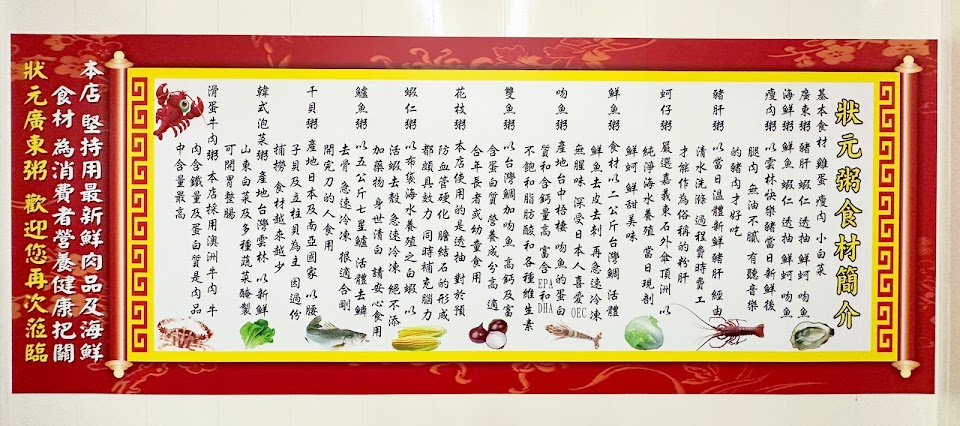 狀元粥食材簡介
基本食材 雞蛋 瘦肉 小白菜
廣東粥 豬肝 蝦仁 透抽 鮮蚵 吻魚
海鮮粥 鮮魚 蝦仁 透抽 鮮蚵 吻魚
瘦肉粥 以雲林快樂豬當日新鮮後
腿肉 無油不膩 有聽音樂
的豬肉才好吃
豬肝粥 以當日溫體新鮮豬肝 經由
清水洗滌 過程費時費工
才能作為俗稱的粉肝
蚵仔粥 嚴選嘉義東石外傘頂洲 以
純淨海水養殖 當日現剖
鮮蚵 鮮甜美味
鮮魚粥 食材以二公斤台灣鯛 活體
鮮魚去皮去刺 再急速冷凍
無腥味 深受日本人喜愛OEC
吻魚粥 產地台中梧棲 吻魚的蛋白
質和含鈣量高 富含EPA和DHA
不飽和脂肪酸和各種維生素
雙魚粥 以台灣鯛加吻魚 高鈣及富
含蛋白質 營養成分高 適
合年長者或幼童食用
花枝粥 本店使用的是透抽 對於預
防血管硬化 膽結石的形成
都頗具效力 同時補充腦力
蝦仁粥 以布袋海水養殖之白蝦 以
活蝦去殼 急速冷凍 絕不添
加藥物 身世清白 請安心食用
鱸魚粥 以五公斤七星鱸 活體去鱗
去骨 急速冷凍 很適合剛
開完刀的人食用
干貝粥 產地日本及南亞國家 以腰
子貝及五柱貝為主 因過份
捕撈 食材越來越少
韓式泡菜粥 產地台灣雲林 以新鮮
山東白菜及多種蔬菜醃製
可開胃整腸
滑蛋牛肉粥 本店採用澳洲牛肉 牛
肉含鐵量及蛋白質是肉品
中含量最高
本店 堅持用最新鮮肉品及海鮮
食材 為消費者營養健康把關
狀元廣東粥 歡迎您再次蒞臨